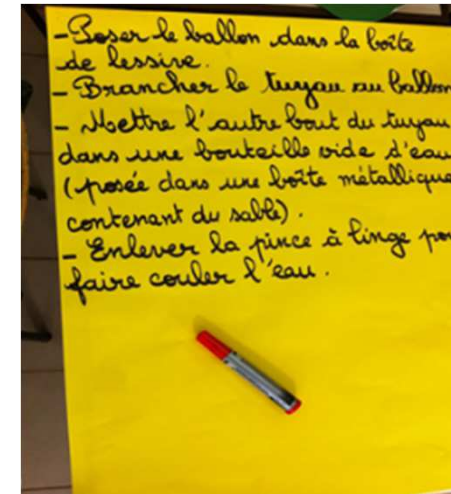 - Poser le ballon dans la boîte
de lessive.
- Brancher le tuyau au ballon
- Mettre l'autre bout du tuyau
dans une bouteille vide d'eau
(posée dans une boîte métallique
contenant du sable).
- Enlever la pince à linge pou
faire couler l'eau.